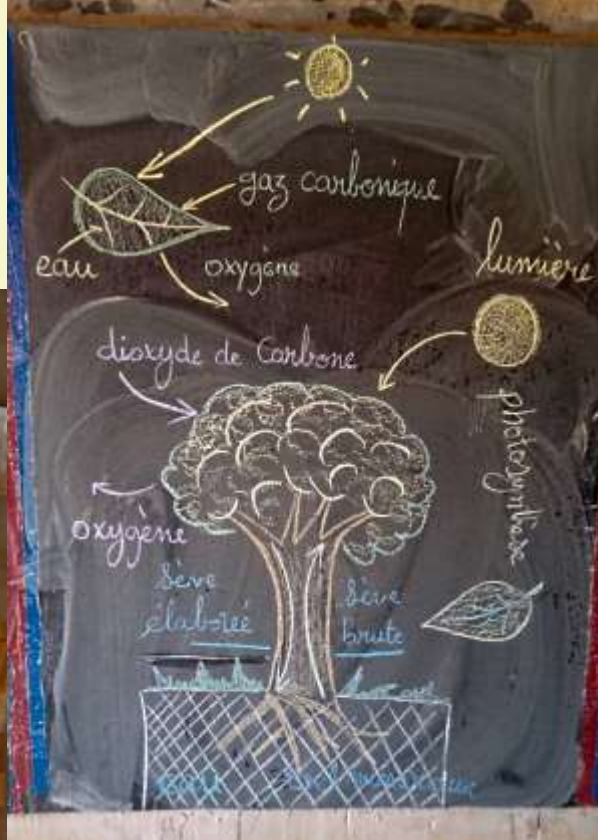 gaz carbonique
eau
oxygène
lumière
dioxyde de Carbone
photosynthèse
oxygène
Sève
élaboreé
Sève
brute